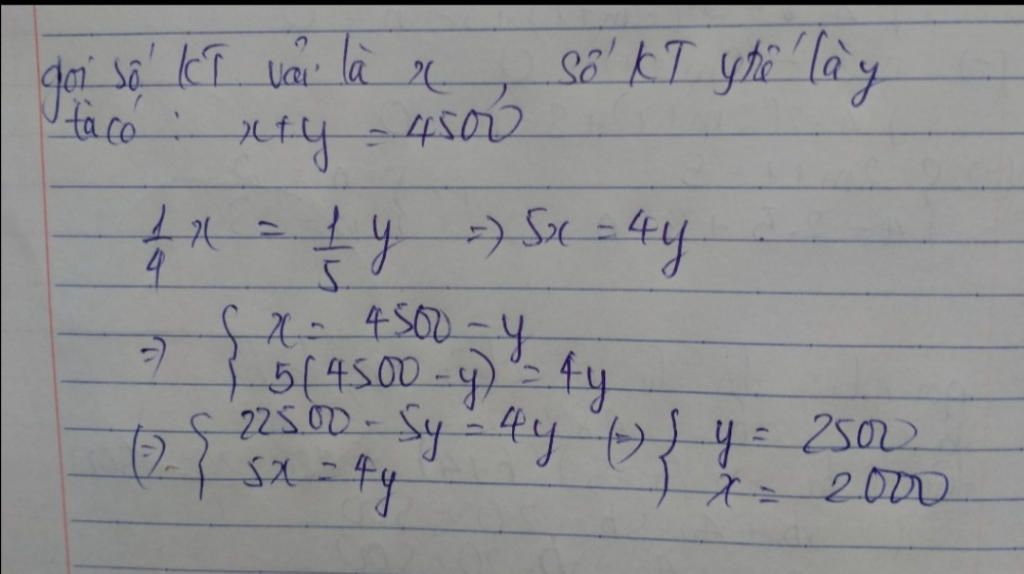 gọi số KT vải là x, số KT y tế là y
ta có: x+y = 4500
1/4 x = 1/5 y => 5x = 4y
=> { x = 4500 - y
5(4500 - y) = 4y
(=> { 22500 - 5y = 4y (=> { y = 2500
5x = 4y x = 2000